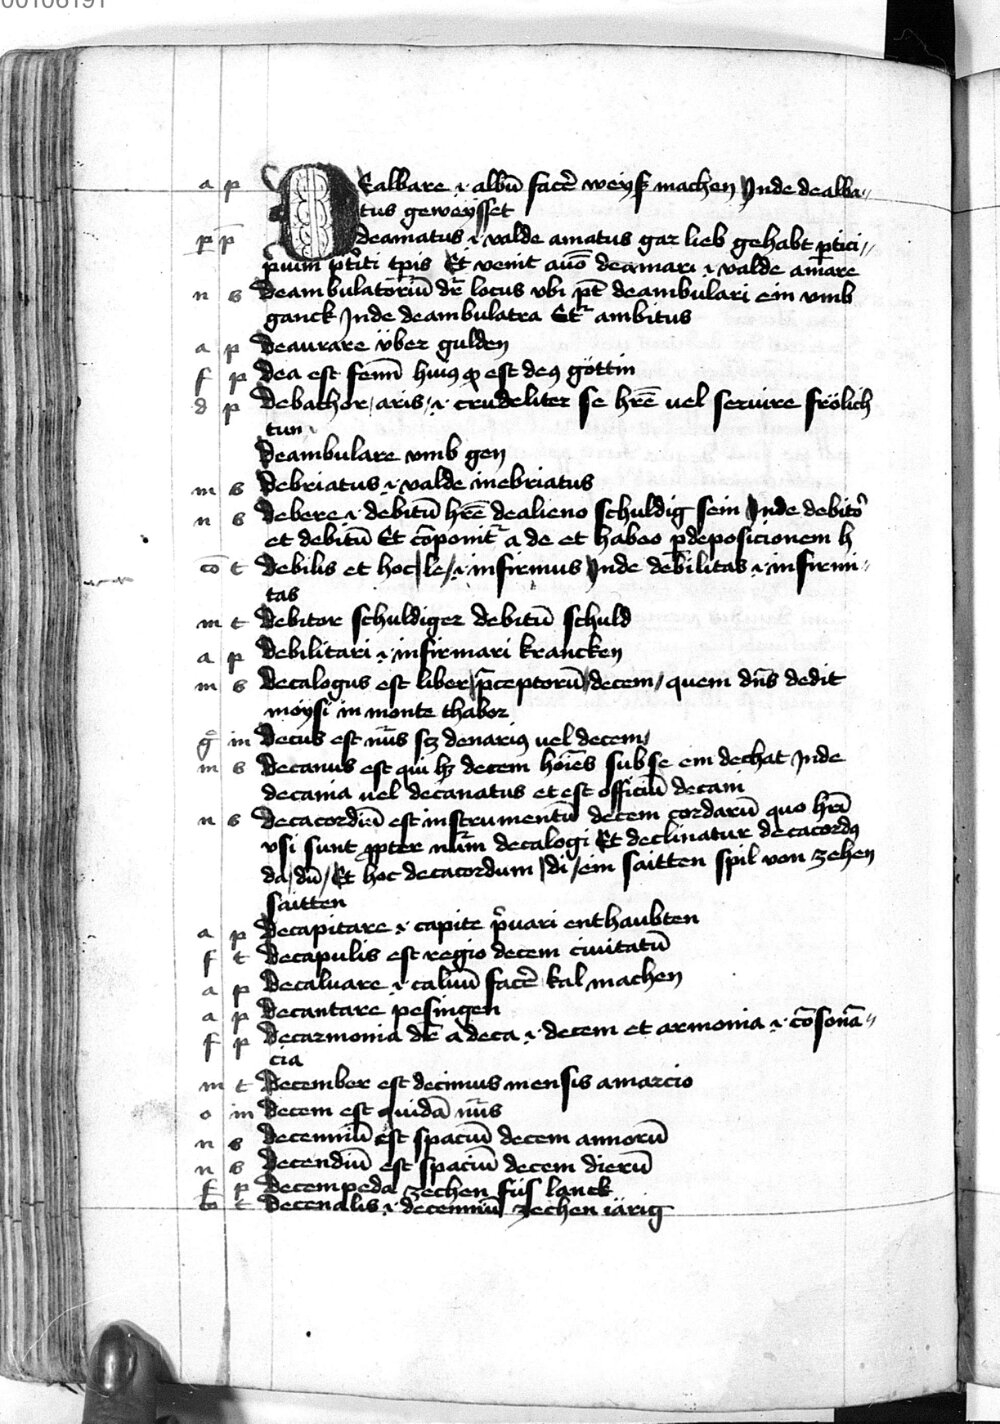 00106191
a p DEalbare .i. albū facē weyß machen Inde dealba〃
tus geweysset
p p̄ deamatus .i. valde amatus gar lieb gehabt ptici〃
pium p̄titi tp̄is Et venit a deamari .i. valde amare
n s deambulatoriū dr̄ locus vbi pt̄ deambulari ein vmb
ganck Inde deambulatra ambitus
a p deaurare über gulden
f p dea est femī huius est deus göttin
d p debachor / aris / .i. crudeliter se hr̄e vel seruire frölich
tun
deambulare vmb gen
m s debriatus .i. valde inebriatus
n s debere .i. debitū hr̄e dealieno schuldig sein Inde debitor
et debitū Et cōponit a de et habeo p deposicionem h
cō t debilis et hoc / le / .i. infirmus Inde debilitas .i. infirmi〃
tas
m t debitor schuldiger debitū schuld
a p debilitari .i. infirmari krancken
m s decalogus est liber p̄ceptorū decem / quem dn̄s dedit
moysi in monte thabor
g in decus est nūs denarius vel decem /
m s decanus est qui hꝫ decem hoīes sub se ein dechat Inde
decania vel decanatus et est officiū decani
n s decacordiū est instrumentū decem cordarū quo
vsi sunt ꝓpter nūm decalogi Et declinatur decacordus
da / dū / Et hoc decacordum / di / ein saitten spil von zehen
saitten
a p decapitare .i. capite p̄uari enthaubten
f t decapulis est regio decem ciuitatū
a p decaluare .i. caluū facē kal machen
a p decantare pesingen
f p decarmonia dr̄ a deca .i. decem et armonia .i. cōsonā〃
cia
m t december est decimus mensis amarcio
o in decem est quidā nūs
n s decenniū est spaciū decem annorū
n s decendiū est spaciū decem dierū
f p decempeda zechen füs lanck
t decenalis .i. decenniū zechen iärig